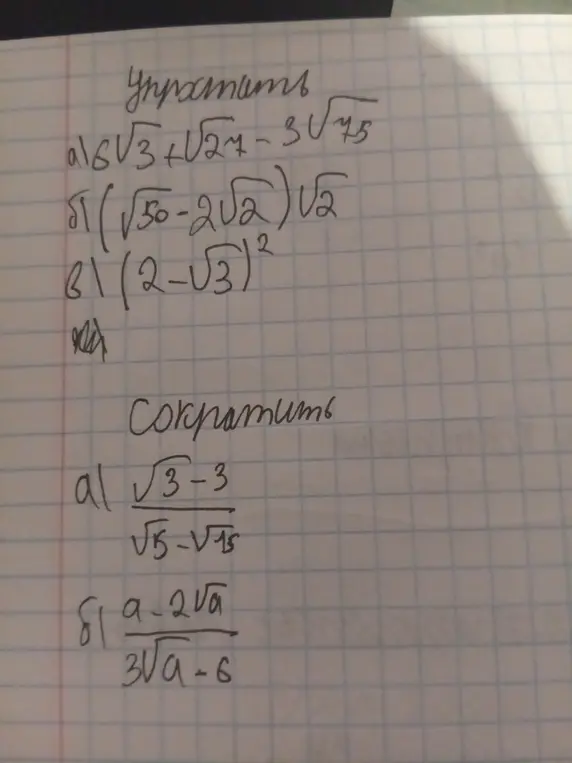 Упростить
а) 6√3 + √27 - 3√75
б) (√50 - 2√2)√2
в) (2 - √3)²
Сократить
а) (√3 - 3)/(√5 - √15)
б) (a - 2√a)/(3√a - 6)